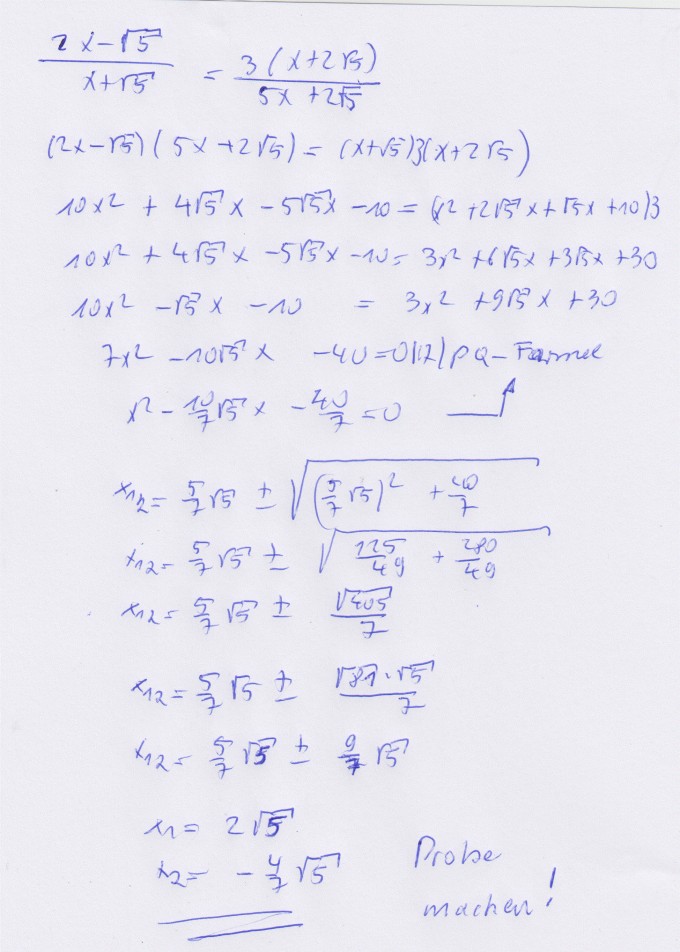 (2x-√5)/(x+√5) = 3(x+2√5)/(5x+2√5)
(2x-√5)(5x+2√5) = (x+√5)3(x+2√5)
10x² + 4√5x - 5√5x - 10 = (x²+2√5x+√5x+10)3
10x² + 4√5x - 5√5x - 10 = 3x² + 6√5x + 3√5x + 30
10x² - √5x - 10 = 3x² + 9√5x + 30
7x² - 10√5x - 40 = 0 |(:7) / PQ-Formel
x² - 10/7 √5x - 40/7 = 0
x₁₂ = 5/7 √5 ± √((5/7 √5)² + 40/7)
x₁₂ = 5/7 √5 ± √(125/49 + 280/49)
x₁₂ = 5/7 √5 ± √405/7
x₁₂ = 5/7 √5 ± √81·√5/7
x₁₂ = 5/7 √5 ± 9/7 √5
x₁ = 2√5
x₂ = -4/7 √5
Probe
machen!